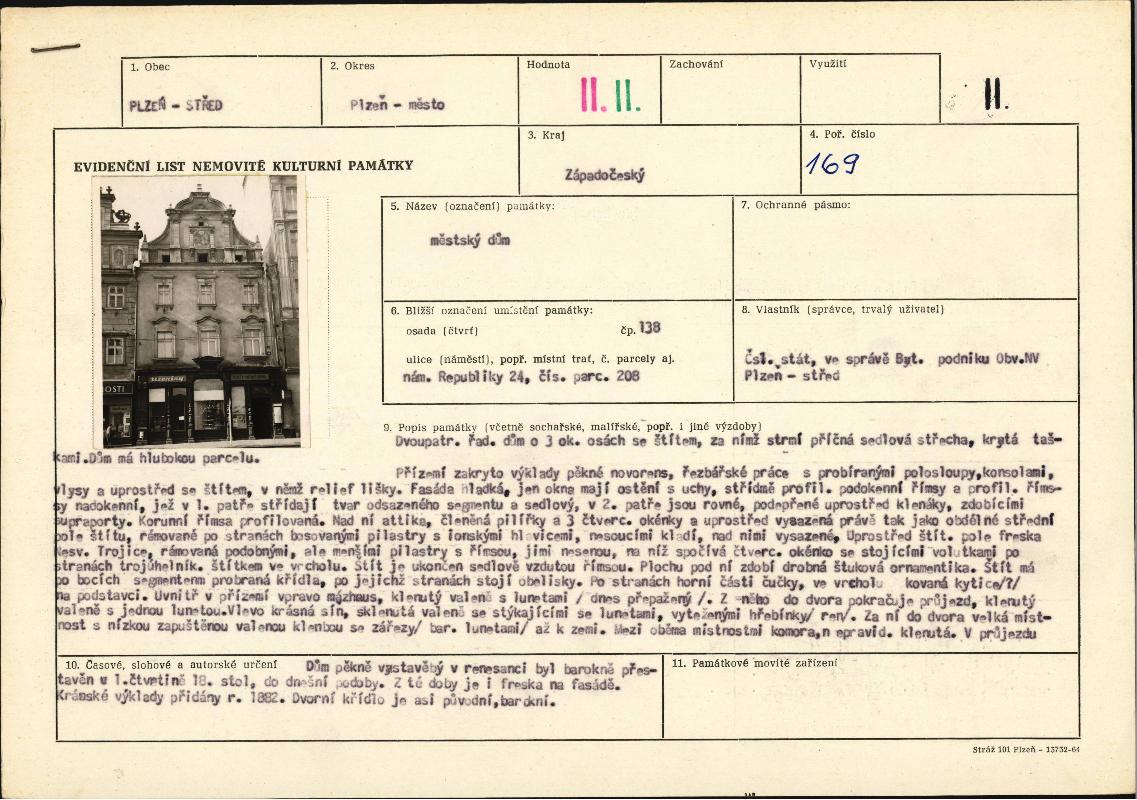 1. Obec
PLZEŇ - STŘED
2. Okres
Plzeň - město
Hodnota
II. II.
Zachování
Využití
II.
EVIDENČNÍ LIST NEMOVITÉ KULTURNÍ PAMÁTKY
3. Kraj
Západočeský
4. Poř. číslo
169
OSTI
5. Název (označení) památky:
městský dům
7. Ochranné pásmo:
6. Bližší označení umístění památky:
osada (čtvrť) čp. 138
ulice (náměstí), popř. místní trať, č. parcely aj.
nám. Republiky 24, čís. parc. 208
8. Vlastník (správce, trvalý uživatel)
Čsl. stát, ve správě Byt. podniku Obv.NV
Plzeň - střed
9. Popis památky (včetně sochařské, malířské, popř. i jiné výzdoby)
Dvoupatr. řad. dům o 3 ok. osách se štítem, za nímž strmí příčná sedlová střecha, krytá taš-
kami.Dům má hlubokou parcelu.
Přízemí zakryto výklady pěkné novorens, řezbářské práce s probíranými polosloupy,konsolami,
vlysy a uprostřed se štítem, v němž relief lišky. Fasáda hladká, jen okna mají ostění s uchy, střídmě profil. podokenní římsy a profil. říms-
sy nadokenní, jež v 1. patře střídají tvar odsazeného segmentu a sedlový, v 2. patře jsou rovné, podepřené uprostřed klenáky, zdobícími
supraporty. Korunní římsa profilovaná. Nad ní attika, členěná pilířky a 3 čtverc. okénky a uprostřed vysazená právě tak jako obdélné střední
pole štítu, rámované po stranách bosovanými pilastry s ionskými hlavicemi, nesoucími kladí, nad nimi vysazené, Uprostřed štít. pole freska
Nesv. Trojice, rámovaná podobnými, ale menšími pilastry s římsou, jimi nesenou, na níž spočívá čtverc. okénko se stojícími volutkami po
stranách trojúhelník. štítkem ve vrcholu. Štít je ukončen sedlově vzdutou římsou. Plochu pod ní zdobí drobná štuková ornamentika. Štít má
po bocích segmentem probraná křídla, po jejichž stranách stojí obelisky. Po stranách horní části čučky, ve vrcholu kovaná kytice/?/
na podstavci. Uvnitř v přízemí vpravo mázhaus, klenutý valeně s lunetami / dnes přepažený /. Z něho do dvora pokračuje průjezd, klenutý
valeně s jednou lunetou.Vlevo krásná síň, sklenutá valeně se stýkajícími se lunetami, vyteženými hřebínky/ ren/. Za ní do dvora velká míst-
nost s nízkou zapuštěnou valenou klenbou se zářezy/ bar. lunetami/ až k zemi. Mezi oběma místnostmi komora,n epravid. klenutá. V průjezdu
10. Časové, slohové a autorské určení Dům pěkně vystavěbý v renesanci byl barokně přes-
tavěn v 1.čtvrtině 18. stol, do dnešní podoby. Z té doby je i freska na fasádě.
Krámské výklady přidány r. 1882. Dvorní křídlo je asi původní,barokní.
11. Památkové movité zařízení
Stráž 101 Plzeň - 13732-64